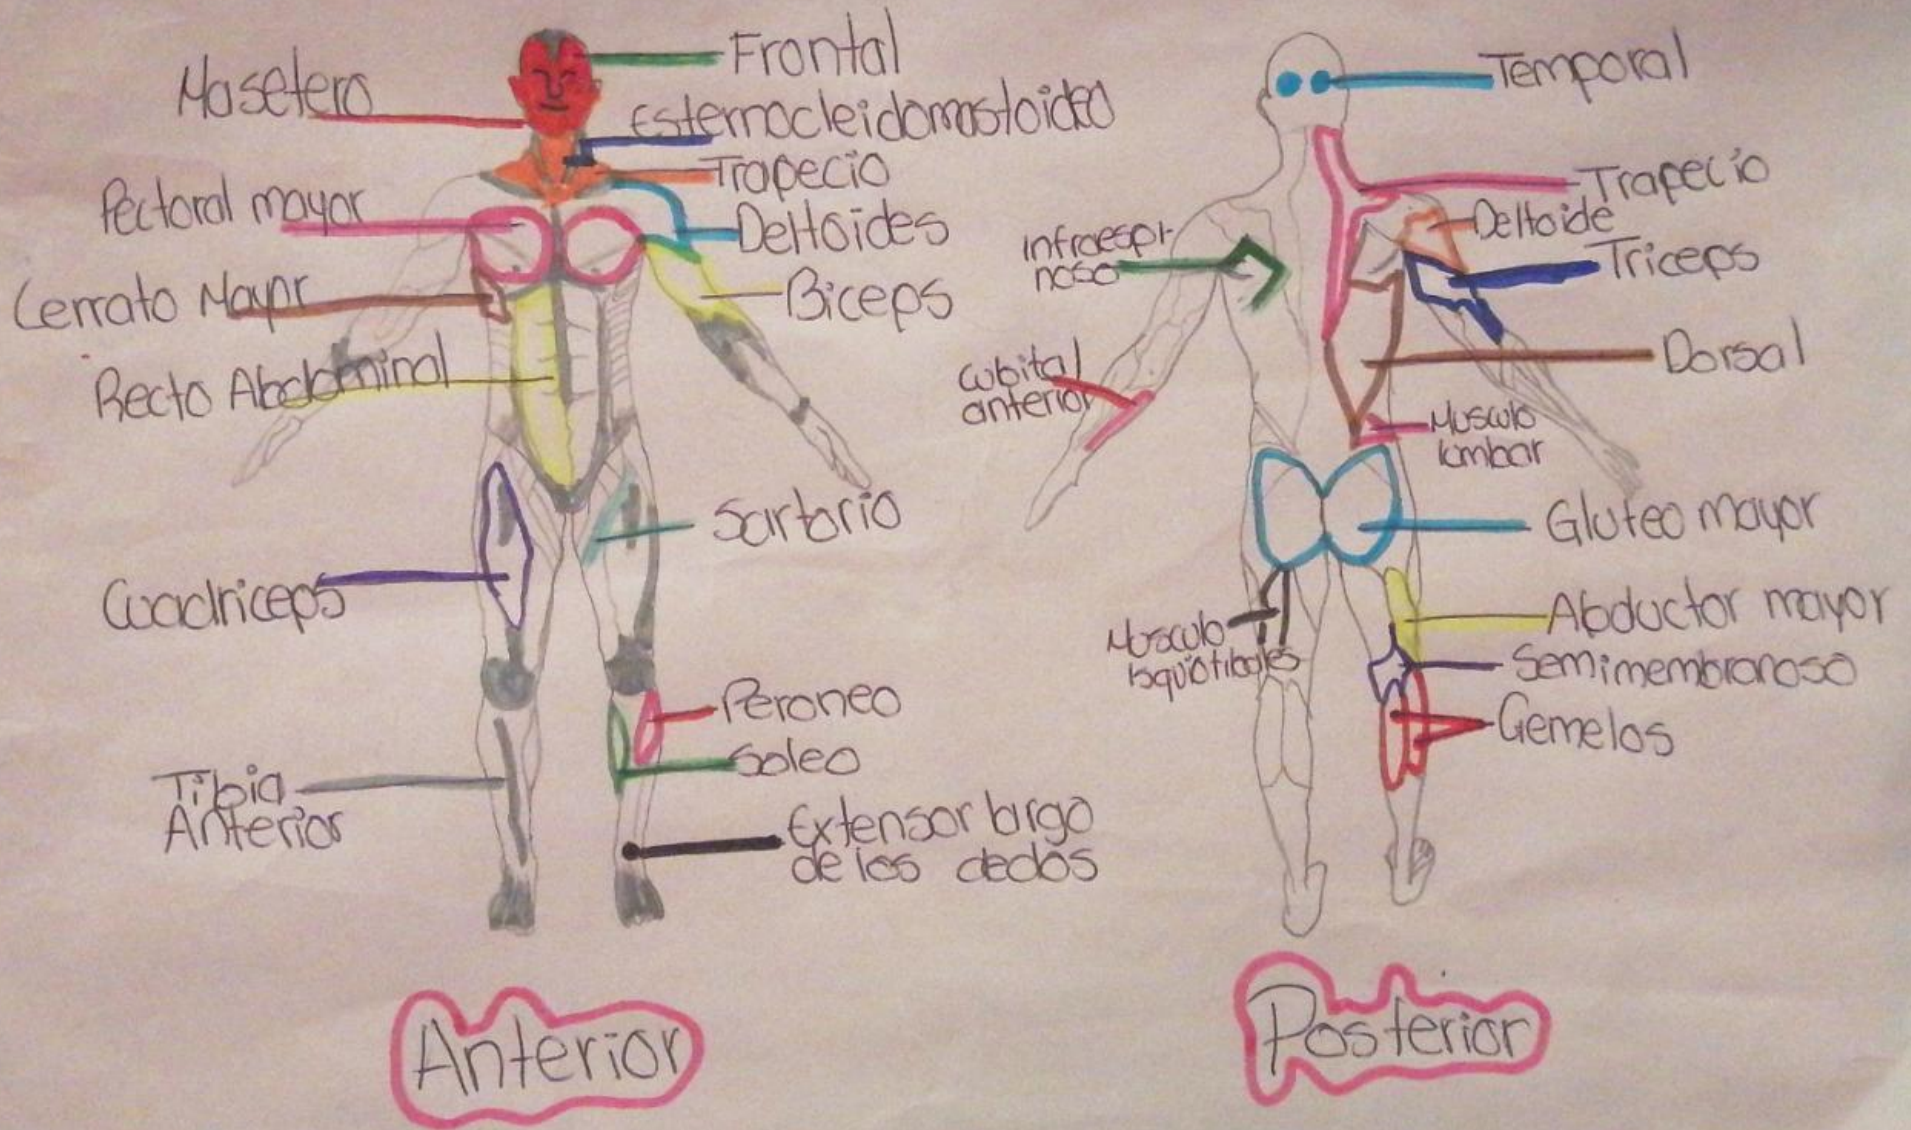 Masetero
Frontal
Esternocleidomastoideo
Trapecio
Pectoral mayor
Deltoides
Cerrato Mayor
Biceps
Recto Abdominal
Sartorio
Cuadriceps
Peroneo
Soleo
Tibia
Anterior
Extensor largo
de los dedos
Anterior
Temporal
Trapecio
Deltoide
infraespi-
noso
Triceps
Dorsal
Cubital
anterior
Musculo
lumbar
Gluteo mayor
Abductor mayor
Musculo
isquiotibiales
Semimembranoso
Gemelos
Posterior